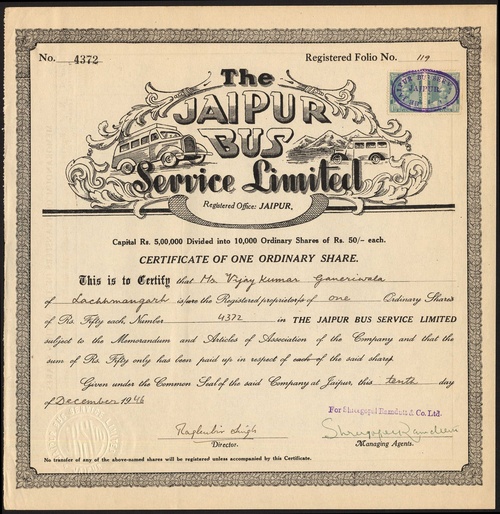 No. 4372 Registered Folio No. 119
The
JAIPUR
BUS
Service Limited
JAIPUR
Registered Office: JAIPUR,
Capital Rs. 5,00,000 Divided into 10,000 Ordinary Shares of Rs. 50/- each.
CERTIFICATE OF ONE ORDINARY SHARE.
This is to Certify that Mr. Vijay Kumar Ganeriwala
of Lachhmangarh is/are the Registered proprietor/s of one Ordinary Shares
of Rs. Fifty each, Number 4372 in THE JAIPUR BUS SERVICE LIMITED
subject to the Memorandum and Articles of Association of the Company and that the
sum of Rs. Fifty only has been paid up in respect of each of the said shares.
Given under the Common Seal of the said Company at Jaipur, this tenth day
of December 1946
For Shreegopal & Co. Ltd.
Raghubir Singh
Director. Managing Agents.
No transfer of any of the above-named shares will be registered unless accompanied by this Certificate.